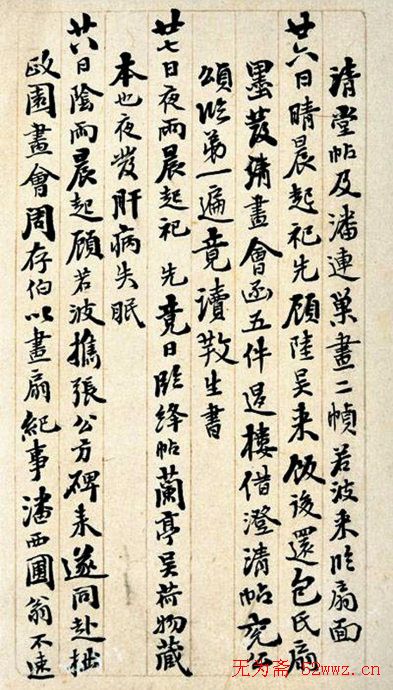 清堂帖及潘连巢畫二幀若波来临扇面
廿六日晴晨起祀先顧陸吴来飯後還包氏扇
墨發請畫會函五件過樓借澄清帖
頌临弟一遍竟讀散生書
廿七日夜雨晨起祀先竟日临绛帖蘭亭吴荷物藏
本也夜發肝病失眠
廿八日陰雨晨起顧若波攜張公方碑来遂同赴拙
政園畫會周存伯以畫扇紀事潘西圃翁不速
无为斋 52wwz.cn